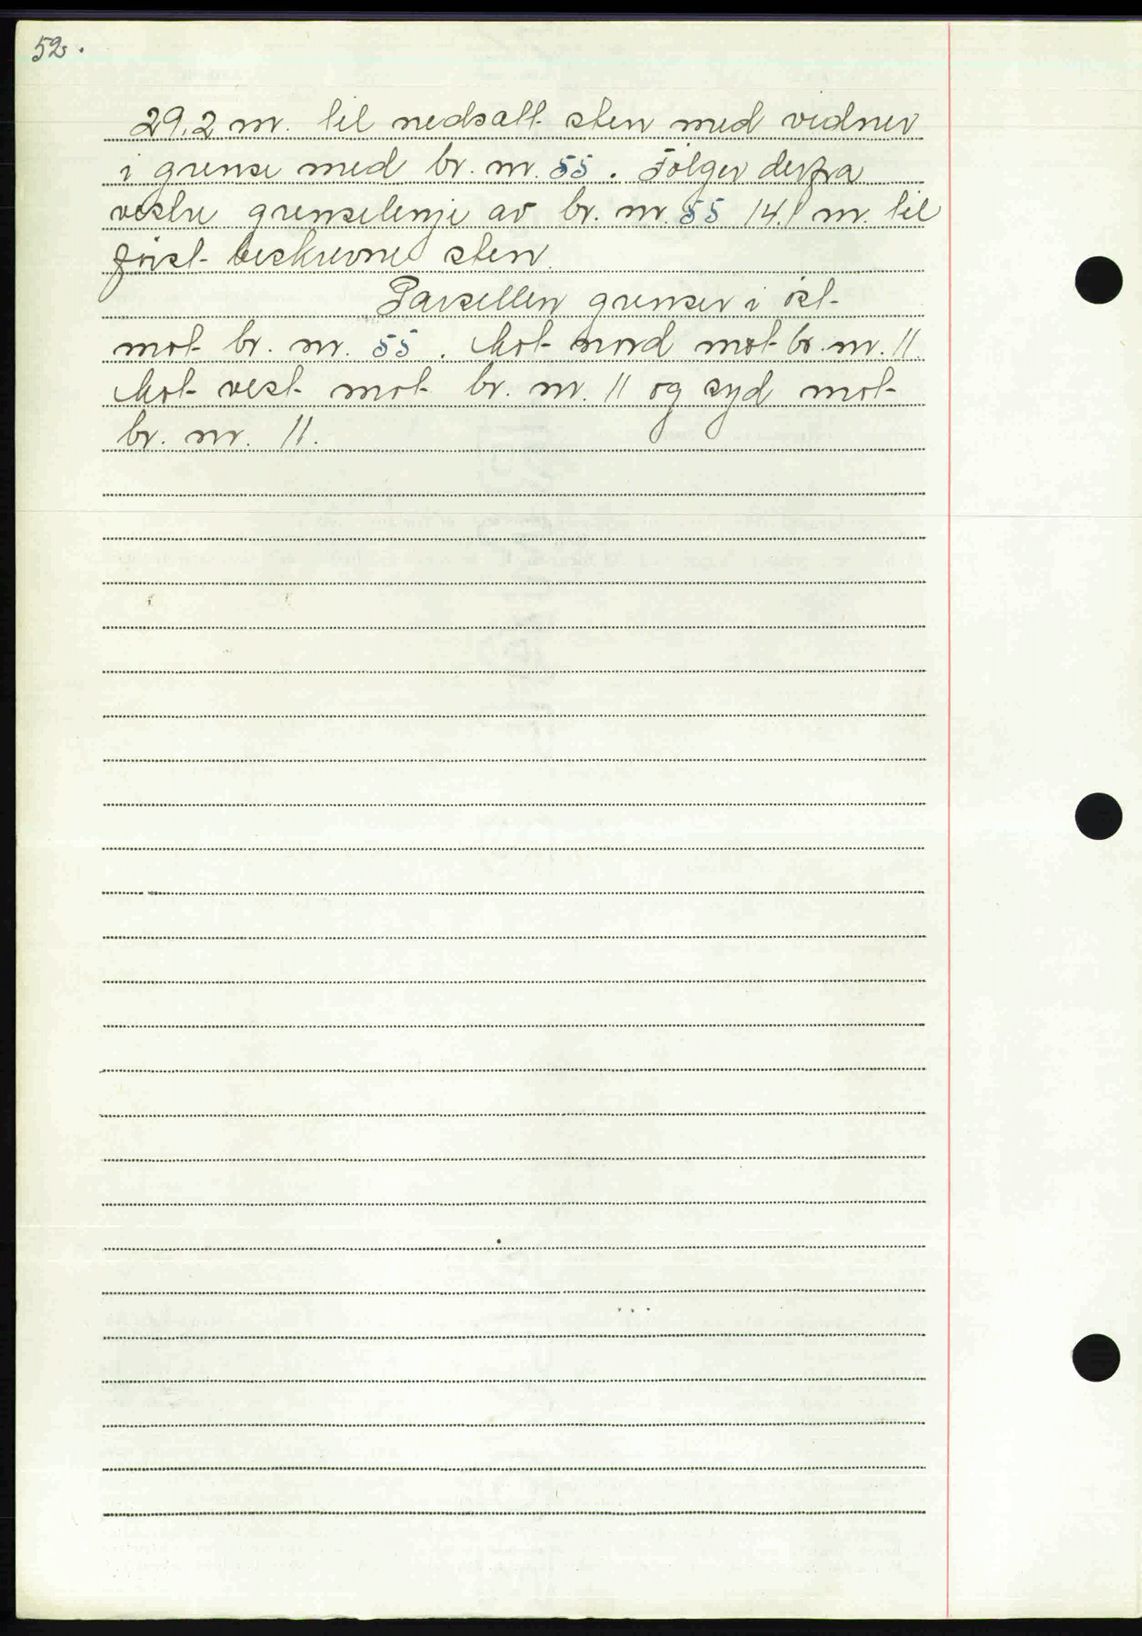 52.
29,2 m. til nedsatt sten med vidner
i grense med br. nr. 55. Følger derfra
vestre grenselinje av br. nr. 55 14,1 m. til
først beskrevne sten.
Parsellen grenser i øst
mot br. nr. 55. Mot nord mot br. nr. 11.
Mot vest mot br. nr. 11 og syd mot
br. nr. 11.